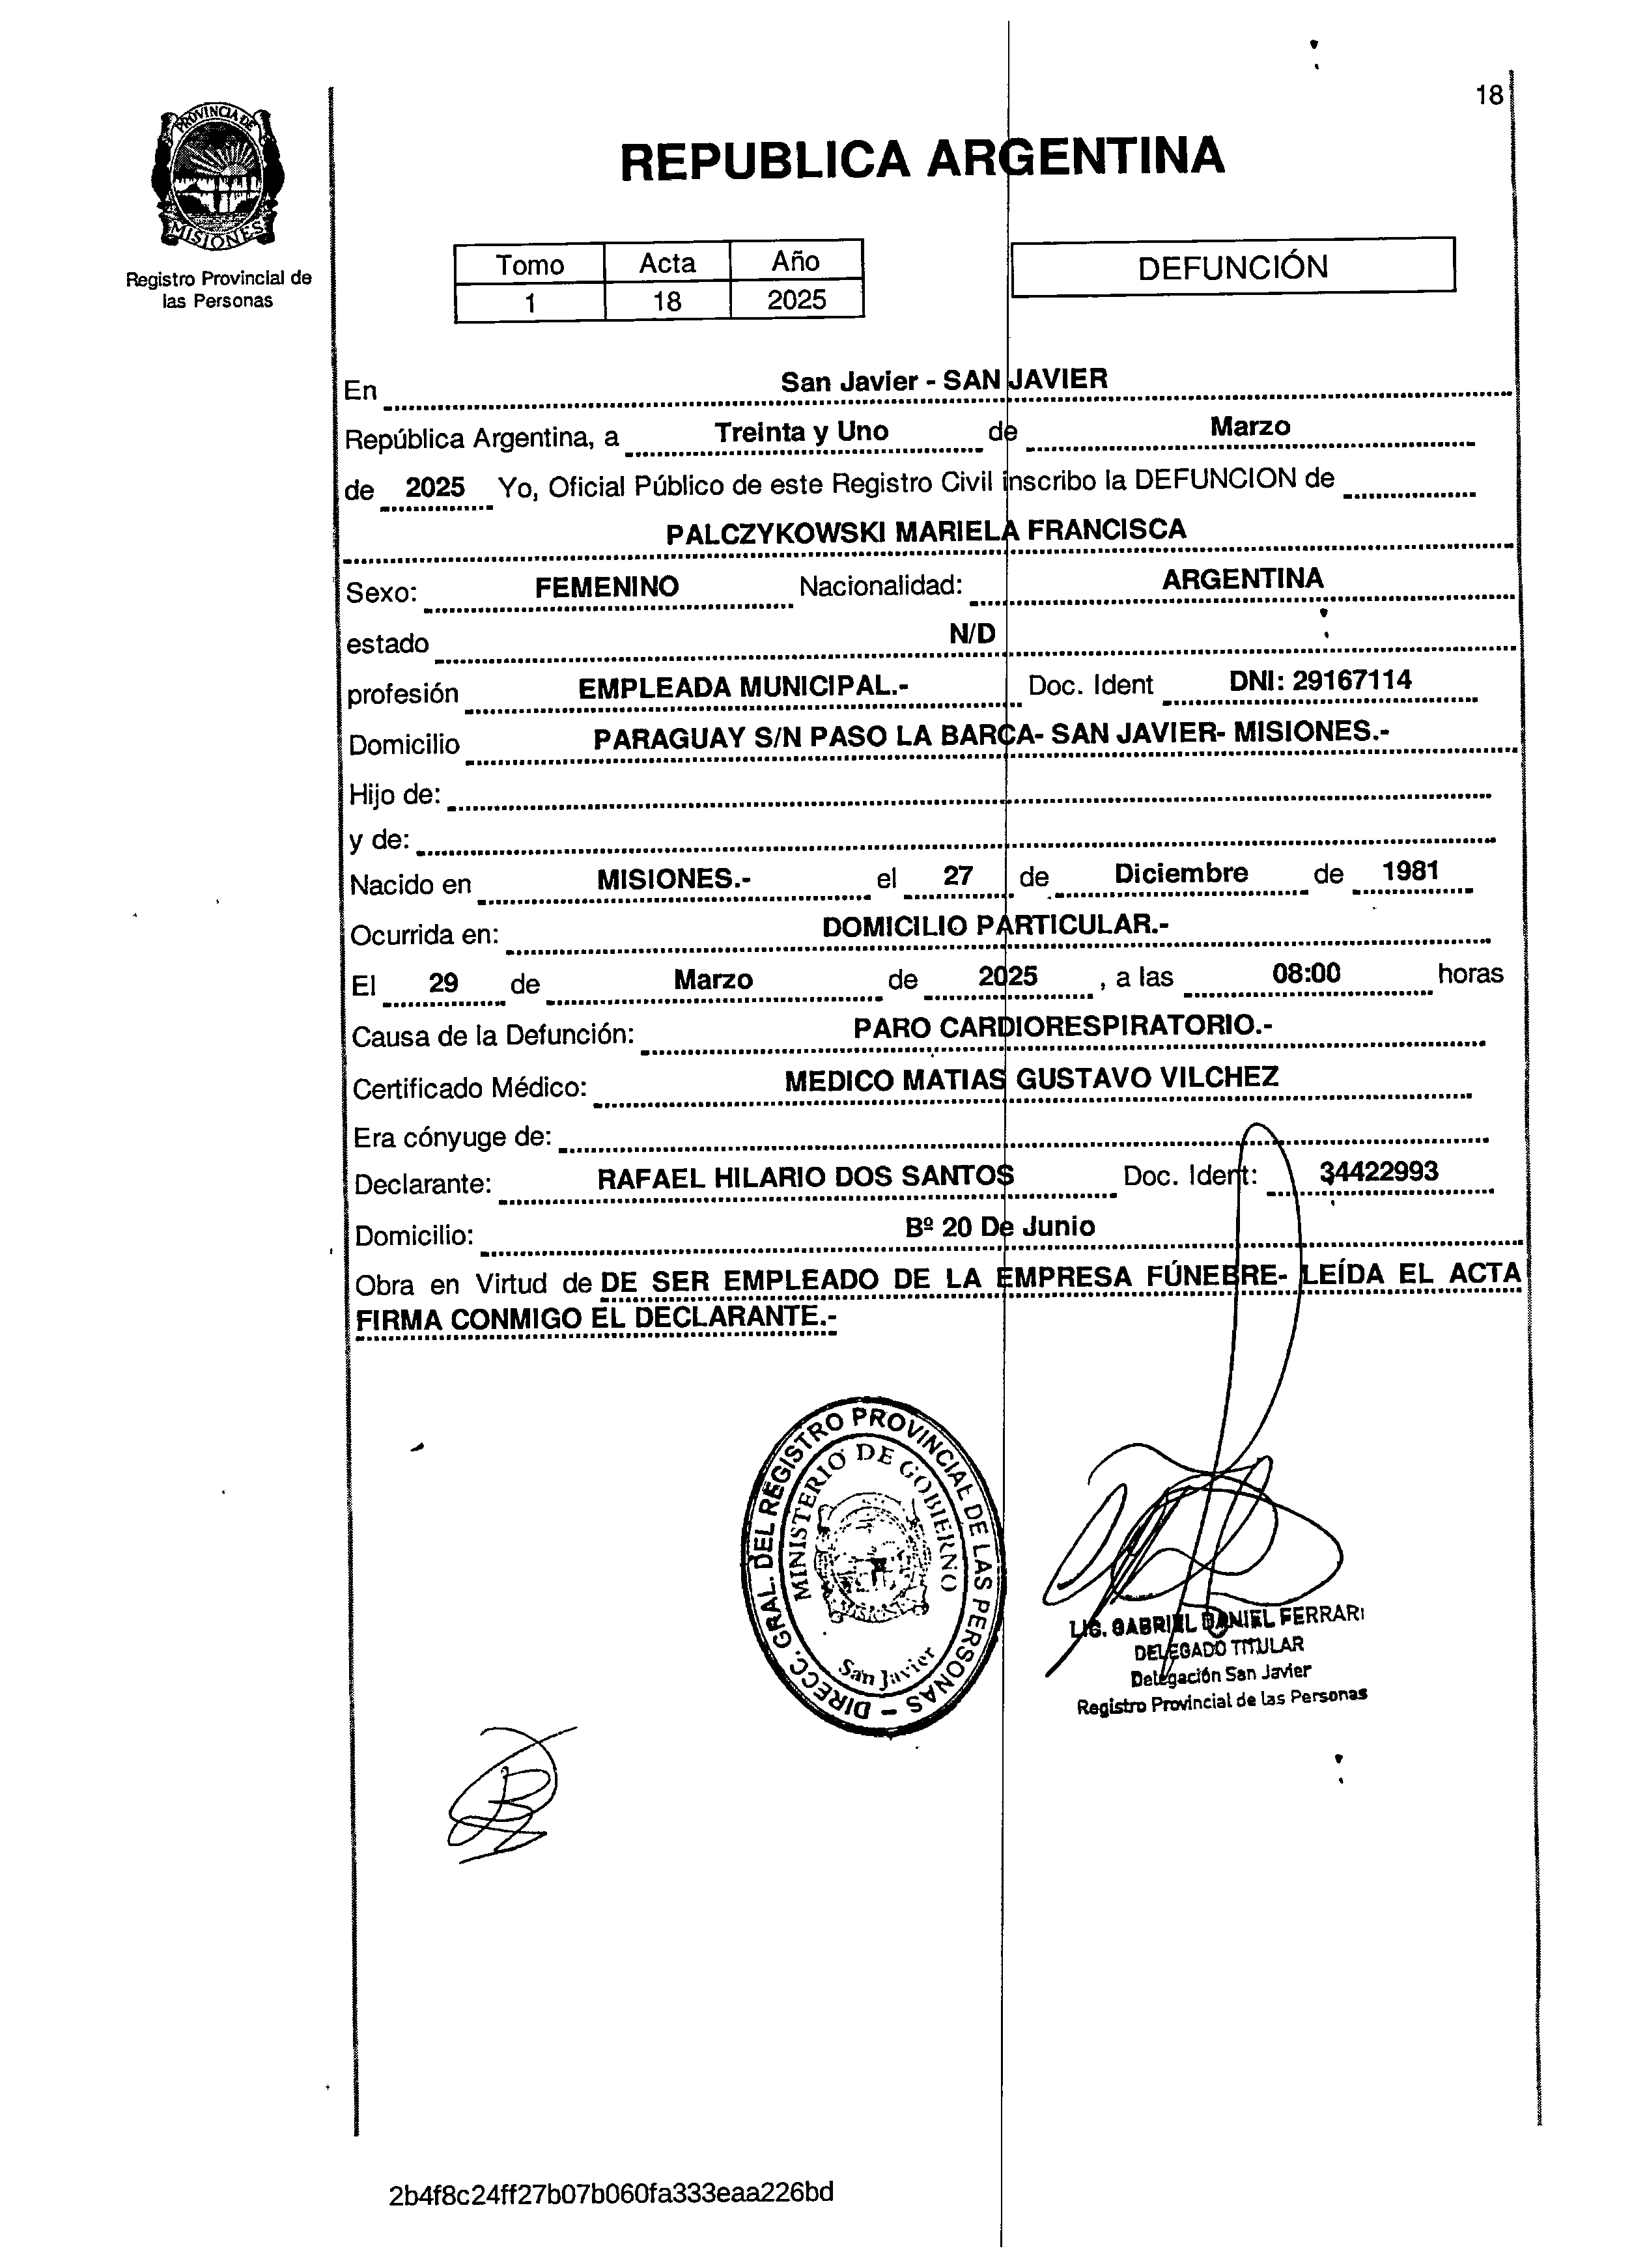 18
PROVINCIA DE
MISIONES
Registro Provincial de
las Personas
REPUBLICA ARGENTINA
Tomo Acta Año
1 18 2025
DEFUNCIÓN
En San Javier - SAN JAVIER
República Argentina, a Treinta y Uno de Marzo
de 2025 Yo, Oficial Público de este Registro Civil inscribo la DEFUNCION de
PALCZYKOWSKI MARIELA FRANCISCA
Sexo: FEMENINO Nacionalidad: ARGENTINA
estado N/D
profesión EMPLEADA MUNICIPAL.- Doc. Ident DNI: 29167114
Domicilio PARAGUAY S/N PASO LA BARCA- SAN JAVIER- MISIONES.-
Hijo de:
y de:
Nacido en MISIONES.- el 27 de Diciembre de 1981
Ocurrida en: DOMICILIO PARTICULAR.-
El 29 de Marzo de 2025 , a las 08:00 horas
Causa de la Defunción: PARO CARDIORESPIRATORIO.-
Certificado Médico: MEDICO MATIAS GUSTAVO VILCHEZ
Era cónyuge de:
Declarante: RAFAEL HILARIO DOS SANTOS Doc. Ident: 34422993
Domicilio: Bº 20 De Junio
Obra en Virtud de DE SER EMPLEADO DE LA EMPRESA FÚNEBRE- LEÍDA EL ACTA
FIRMA CONMIGO EL DECLARANTE.-
DIRECC. GRAL. DEL REGISTRO PROVINCIAL DE LAS PERSONAS –
MINISTERIO DE GOBIERNO
San Javier
LIC. GABRIEL DANIEL FERRARI
DELEGADO TITULAR
Delegación San Javier
Registro Provincial de las Personas
2b4f8c24ff27b07b060fa333eaa226bd